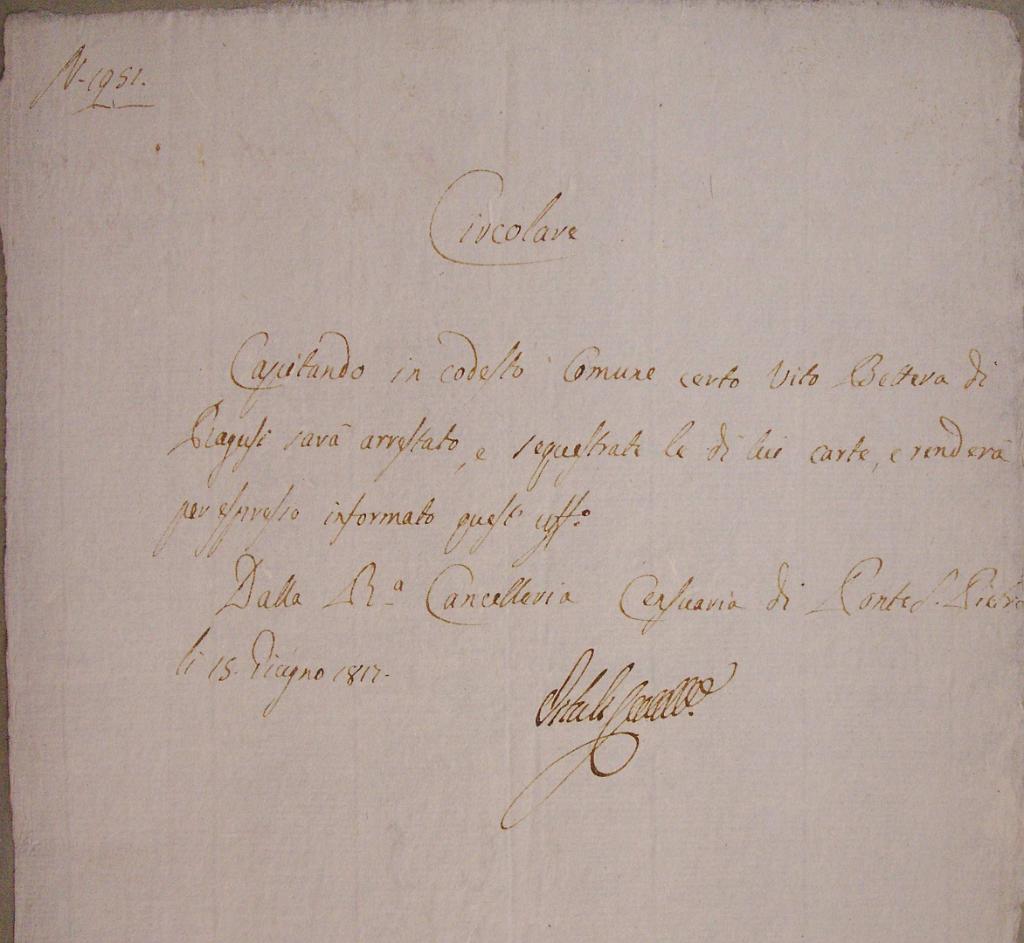 N. 1951.
Circolare
Capitando in codesto Comune certo Vito Bettera di
Ragusi sarà arrestato, e sequestrate le di lui carte, e renderà
per espresso informato quest' uff.o
Dalla R.a Cancelleria Censuaria di Ponte S. Pietro
li 15. Giugno 1817.